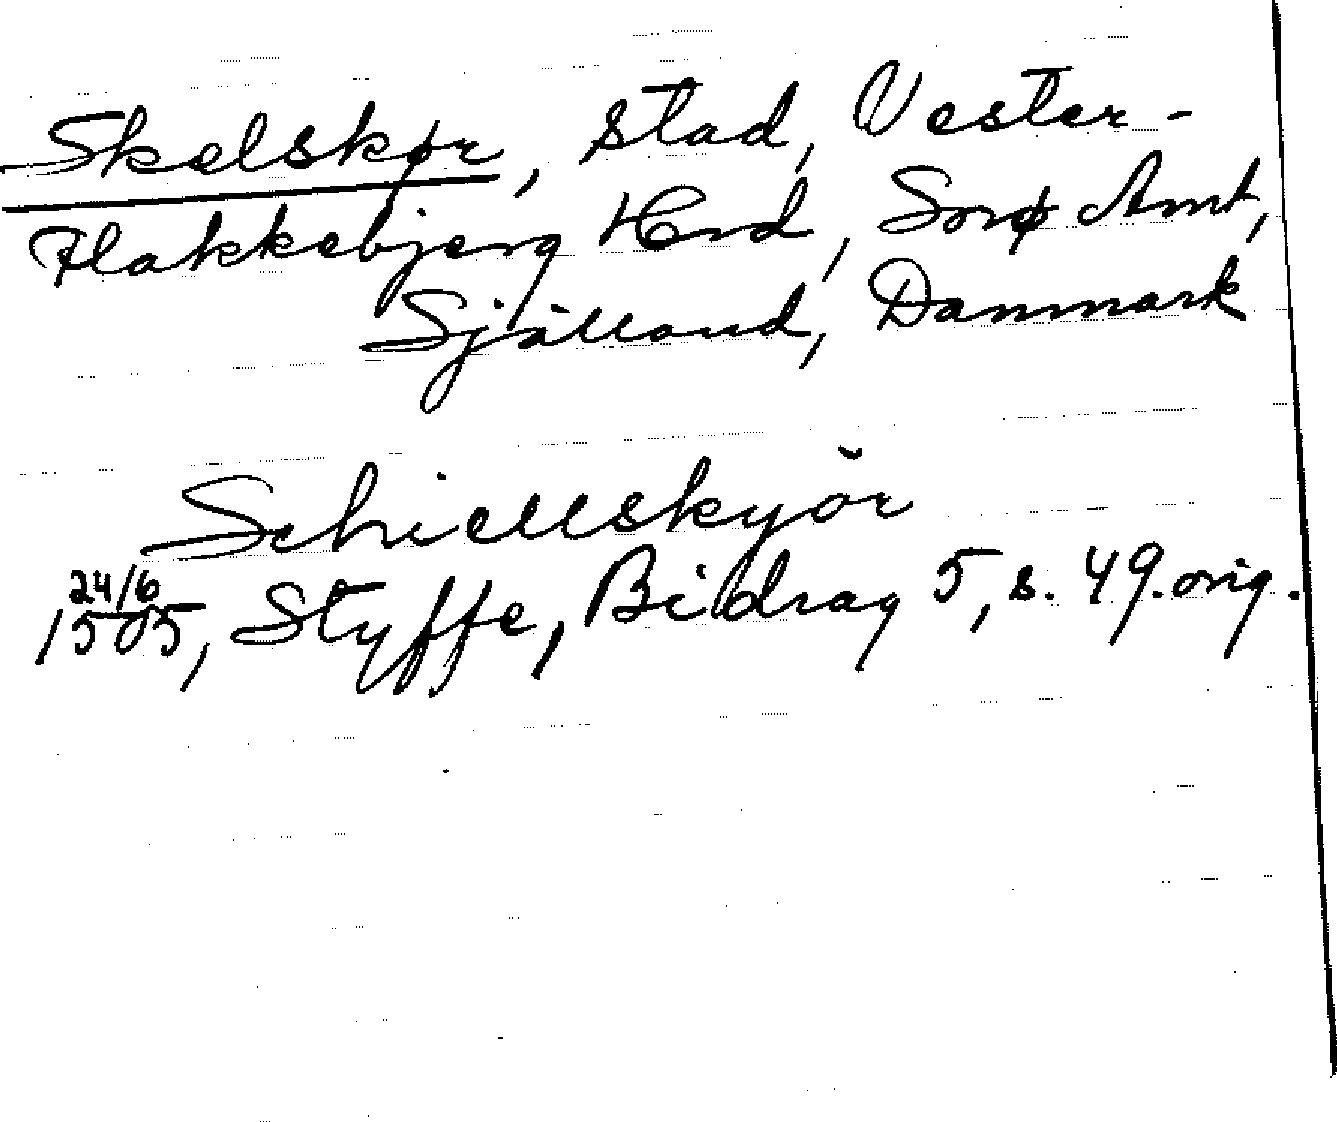 Skelskør, stad, Vester-
Flakkebjerg Hrd, Sorø Amt,
Själland, Danmark
Schiellskyör
24/6
1505, Styffe, Bidrag 5, s. 49. orig.